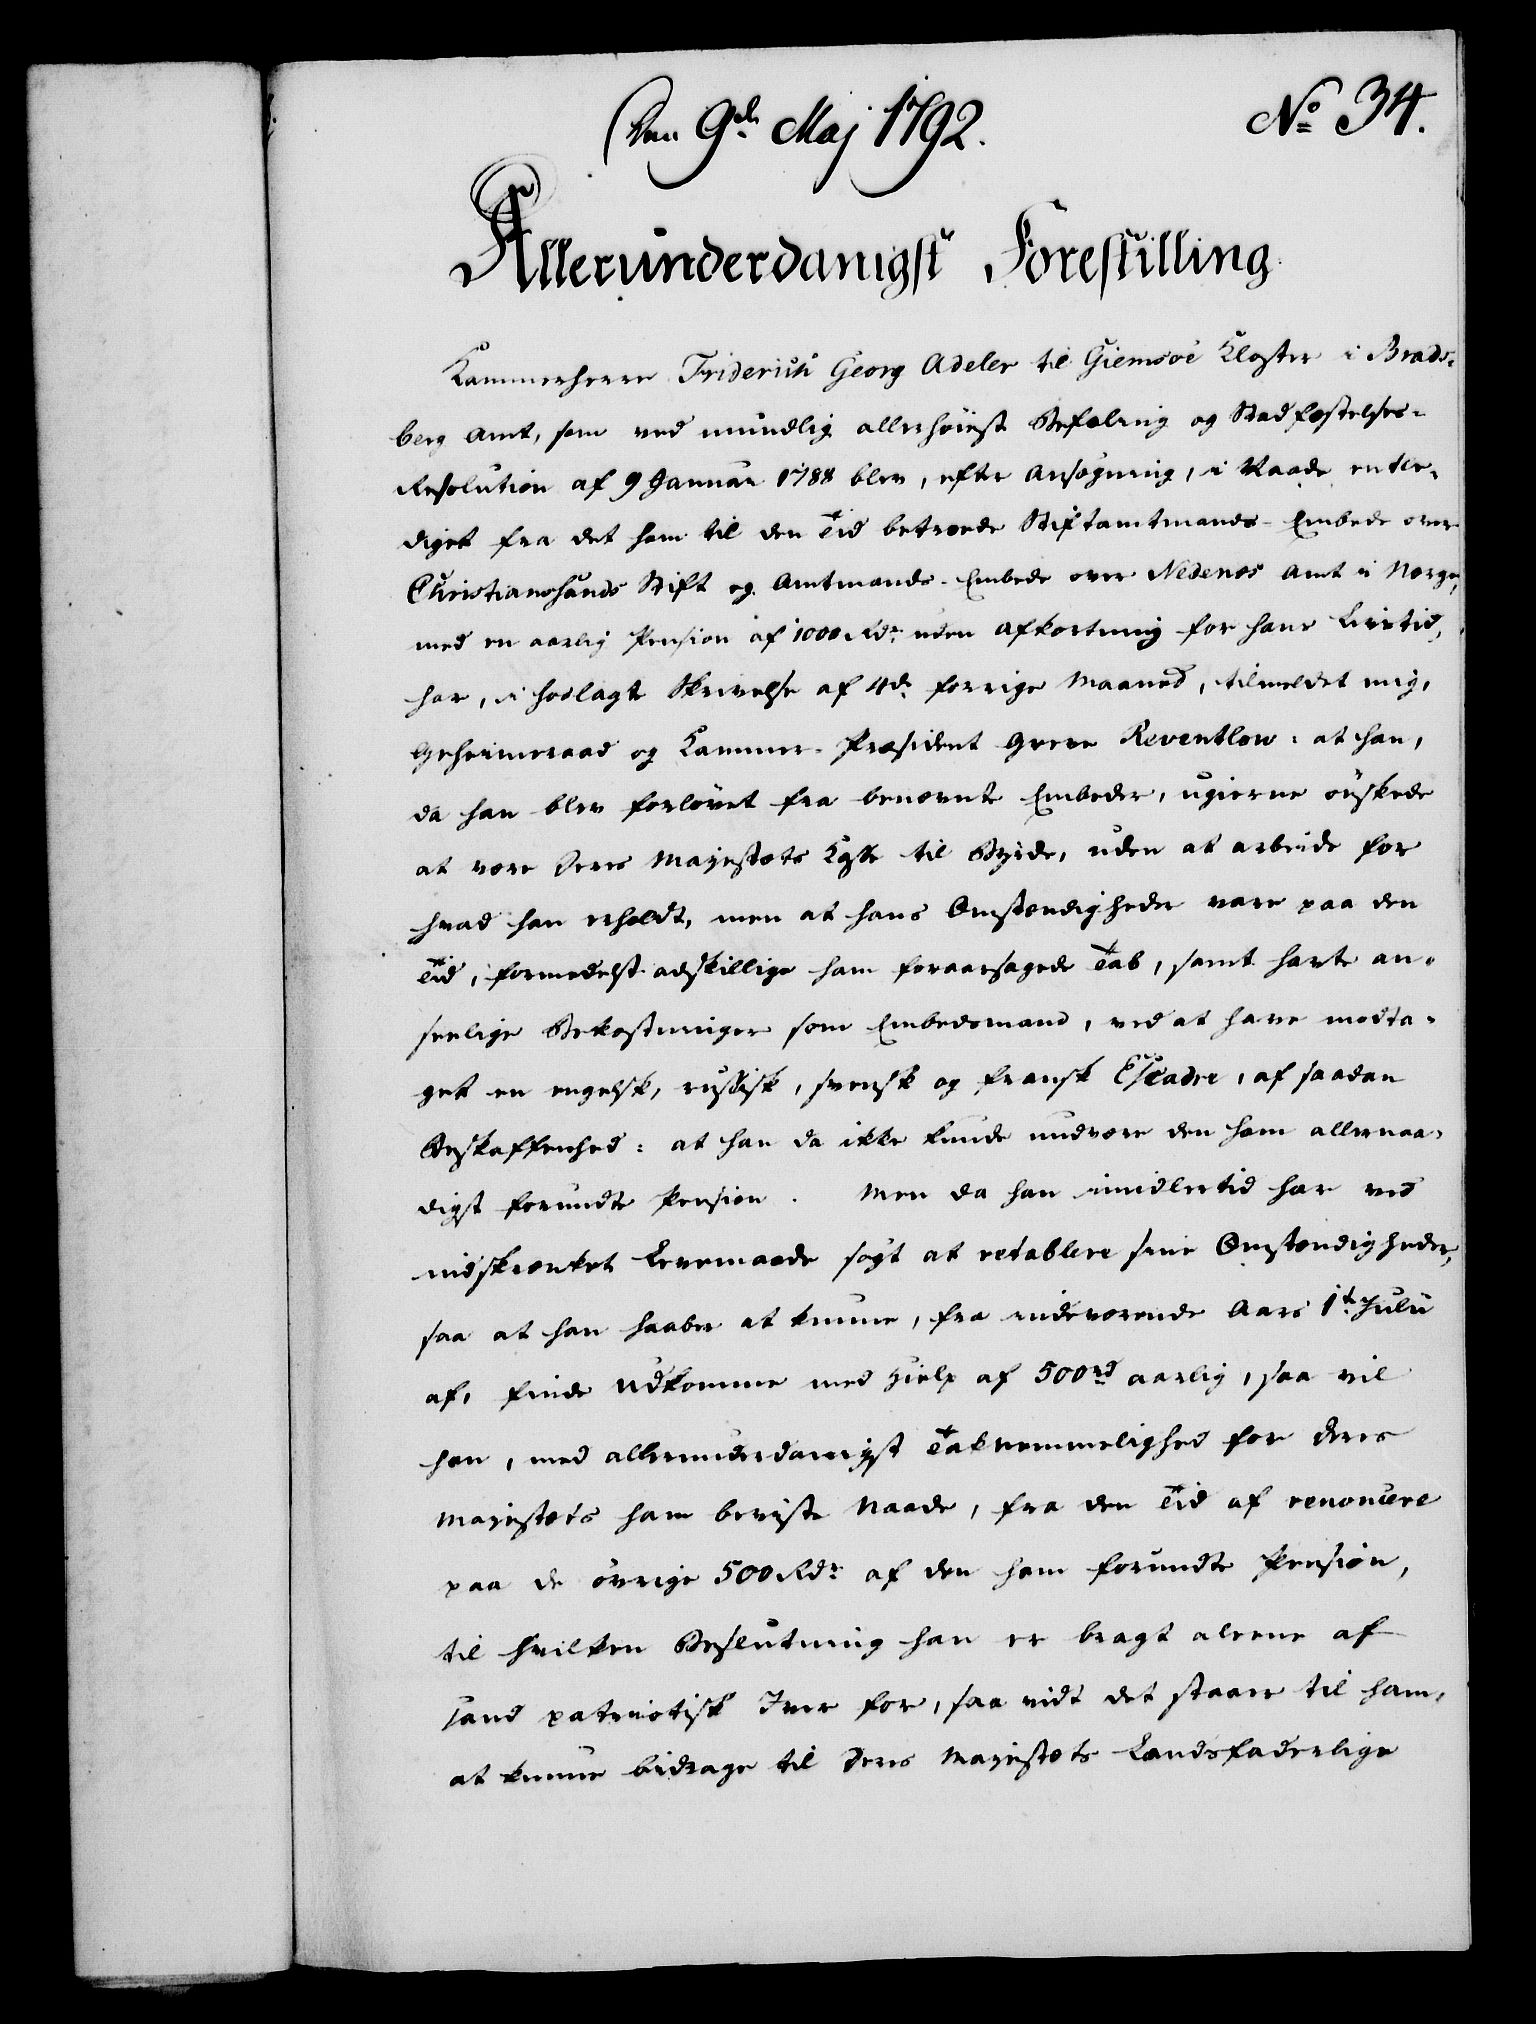 Den 9de Maj 1792.
No 34.
Allerunderdanigst Forestilling
Kammerherre Friderich Georg Adeler til Giemsøe Kloster i Brads-
berg Amt, som ved mundlig allerhøiest Befaling og Stadfæstelses-
Resolution af 9 Januar 1788 blev, efter Ansøgning, i Naade entle-
diget fra det ham til den Tid betroede Stiftamtmands-Embede over
Christiansands Stift og Amtmands-Embede over Nedenes Amt i Norge,
med en aarlig Pension af 1000 Rdr uden Afkortning for hans Livstid,
har, i hoslagte Skrivelse af 4de forrige Maaned, tilmeldet mig,
Geheimeraad og Kammer-Præsident Greve Reventlow: at han,
da han blev forlovet fra benævnte Embeder, ugierne ønskede
at være Deres Majestæts Kasse til Byrde, uden at arbeide for
hvad han erholdt, men at hans Omstændigheder vare paa den
Tid, formedelst adskillige ham foraarsagede Tab, samt havte an-
seelige Bekostninger som Embedsmand, ved at have modta-
get en engelsk, russisk, svensk og fransk Escadre, af saadan
Beskaffenhed: at han da ikke kunde undvære den ham allernaa-
digst forundte Pension. Men da han imidlertid har ved
indskrænket Levemaade søgt at retablere sine Omstændigheder,
saa at han haaber at kunne, fra indeværende Aars 1te Julii
af, finde Udkomme med Hielp af 500 rd aarlig, saa vil
han, med allerunderdanigst Taknemmelighed for Deres
Majestæts ham beviste Naade, fra den Tid af renoncere
paa de øvrige 500 Rdr af den ham forundte Pension,
til hvilken Beslutning han er bragt alene af
sand patriotisk Iver for, saa vidt det staaer til ham,
at kunne bidrage til Deres Majestæts Landsfaderlige